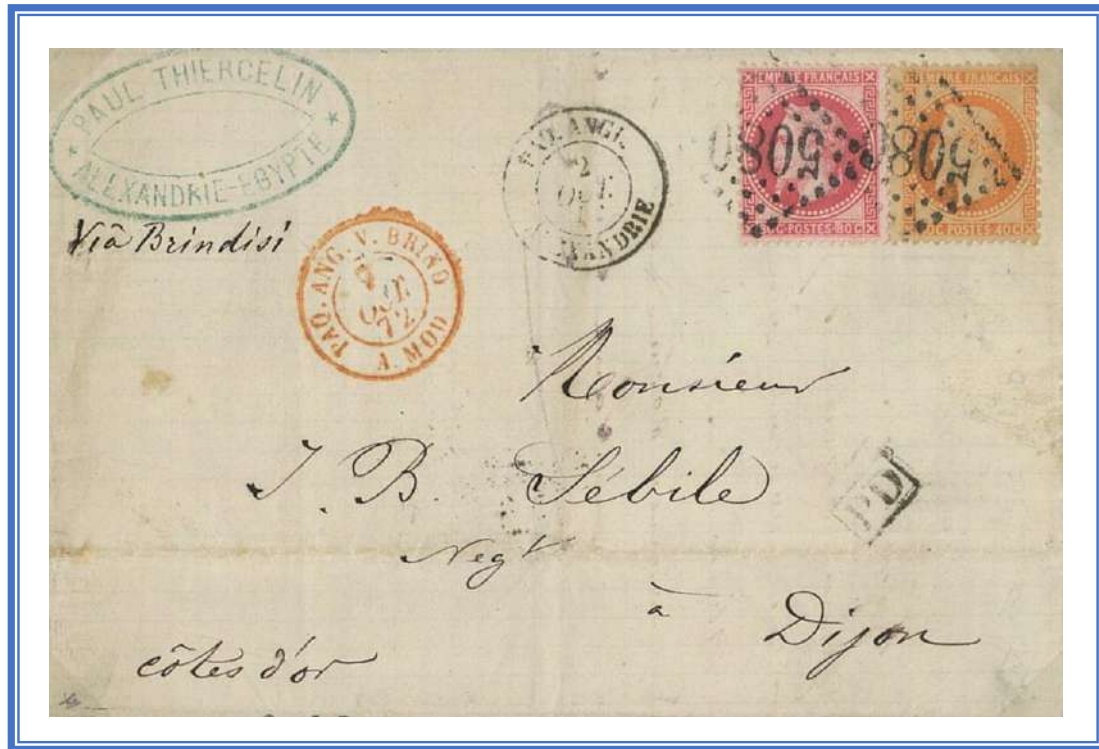 PAUL THIERCELIN
ALEXANDRIE-EGYPTE
Viâ Brindisi
PAQ. ANG. V. BRIND
OCT.
72
A. MOD
PAQ. ANGL.
2
OCT.
EMPIRE FRANÇAIS
5080
POSTES 80 C
EMPIRE FRANÇAIS
5080
POSTES 40 C
Monsieur
J. B. Sébile
Negt
PD
à
Dijon
côtes d'or